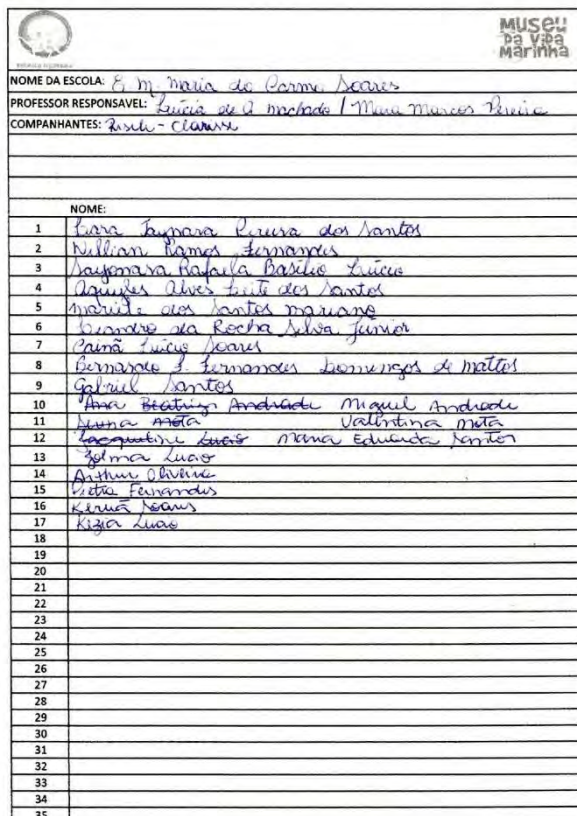 MUSEU
DA VIDA
MARINHA
NOME DA ESCOLA: E. M. Maria do Carmo Soares
PROFESSOR RESPONSAVEL: Lúcia de A Machado / Mara Marcos Pereira
COMPANHANTES: - Clarisse
NOME:
1 Taynara Pereira dos Santos
2 Willian Ramos Fernandes
3 Sayonara Rafaela Basílio Lúcio
4 Aquyles Alves Leite dos Santos
5 dos Santos mariano
6 Leandro da Rocha Silva Júnior
7 Cainã Lúcio Soares
8 Bernardo F. Fernandes Domingos de mattos
9 Gabriel Santos
10 Ana Beatriz Andrade Miguel Andrade
11 Mota Valentina mota
12 Jacqueline Lucio Maria Eduarda Santos
13 Zelma Lucio
14 Arthur Oliveira
15 Pietra Fernandes
16 Keruã Soares
17 Kezia Lucio
18
19
20
21
22
23
24
25
26
27
28
29
30
31
32
33
34
35